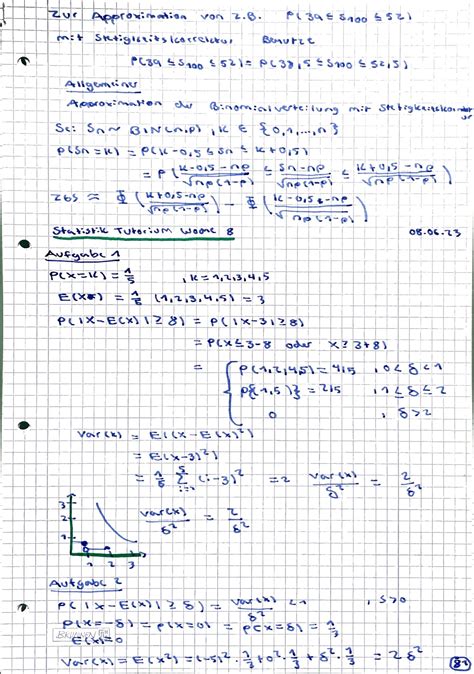 Zur Approximation von z.B. P(39 ≤ S100 ≤ 52)
mit Stetigkeitskorrektur Benutze
P(39 ≤ S100 ≤ 52) = P(38,5 ≤ S100 ≤ 52,5)
Allgemeiner
Approximation der Binomialverteilung mit Stetigkeitskorrektur
Sei Sn ~ BIN(n,p), k ∈ {0,1,...,n}
P(Sn = k) = P(k-0,5 ≤ Sn ≤ k+0,5)
= P( (k-0,5-np)/√(np(1-p)) ≤ (Sn-np)/√(np(1-p)) ≤ (k+0,5-np)/√(np(1-p)) )
ZGS ≈ Φ( (k+0,5-np)/√(np(1-p)) ) - Φ( (k-0,5-np)/√(np(1-p)) )
Statistik Tutorium Woche 8 08.06.23
Aufgabe 1
P(X=k) = 1/5 , k = 1,2,3,4,5
E(X) = 1/5 (1,2,3,4,5) = 3
P(|X-E(X)| ≥ δ) = P(|X-3| ≥ δ)
= P(X ≤ 3-δ oder X ≥ 3+δ)
= P(1,2,4,5) = 4/5 , 0 < δ < 1
P{(1,5)} = 2/5 , 1 ≤ δ ≤ 2
0 , δ > 2
Var(X) = E((X-E(X)²)
= E(X-3)²)
= 1/5 5 Σ i=1 (i-3)² = 2 Var(X)/δ² = 2/δ²
Var(X)/δ² = 2/δ²
3
2
1 2 3
Aufgabe 2
P(|X-E(X)| ≥ δ) = Var(X)/δ² < 1 , δ > 0
P(X=-δ) = P(X=0) = P(X=δ) = 1/3
E(X)=0
Var(X) = E(X²) = (-δ)² · 1/3 + 0² · 1/3 + δ² · 1/3 = 2δ²